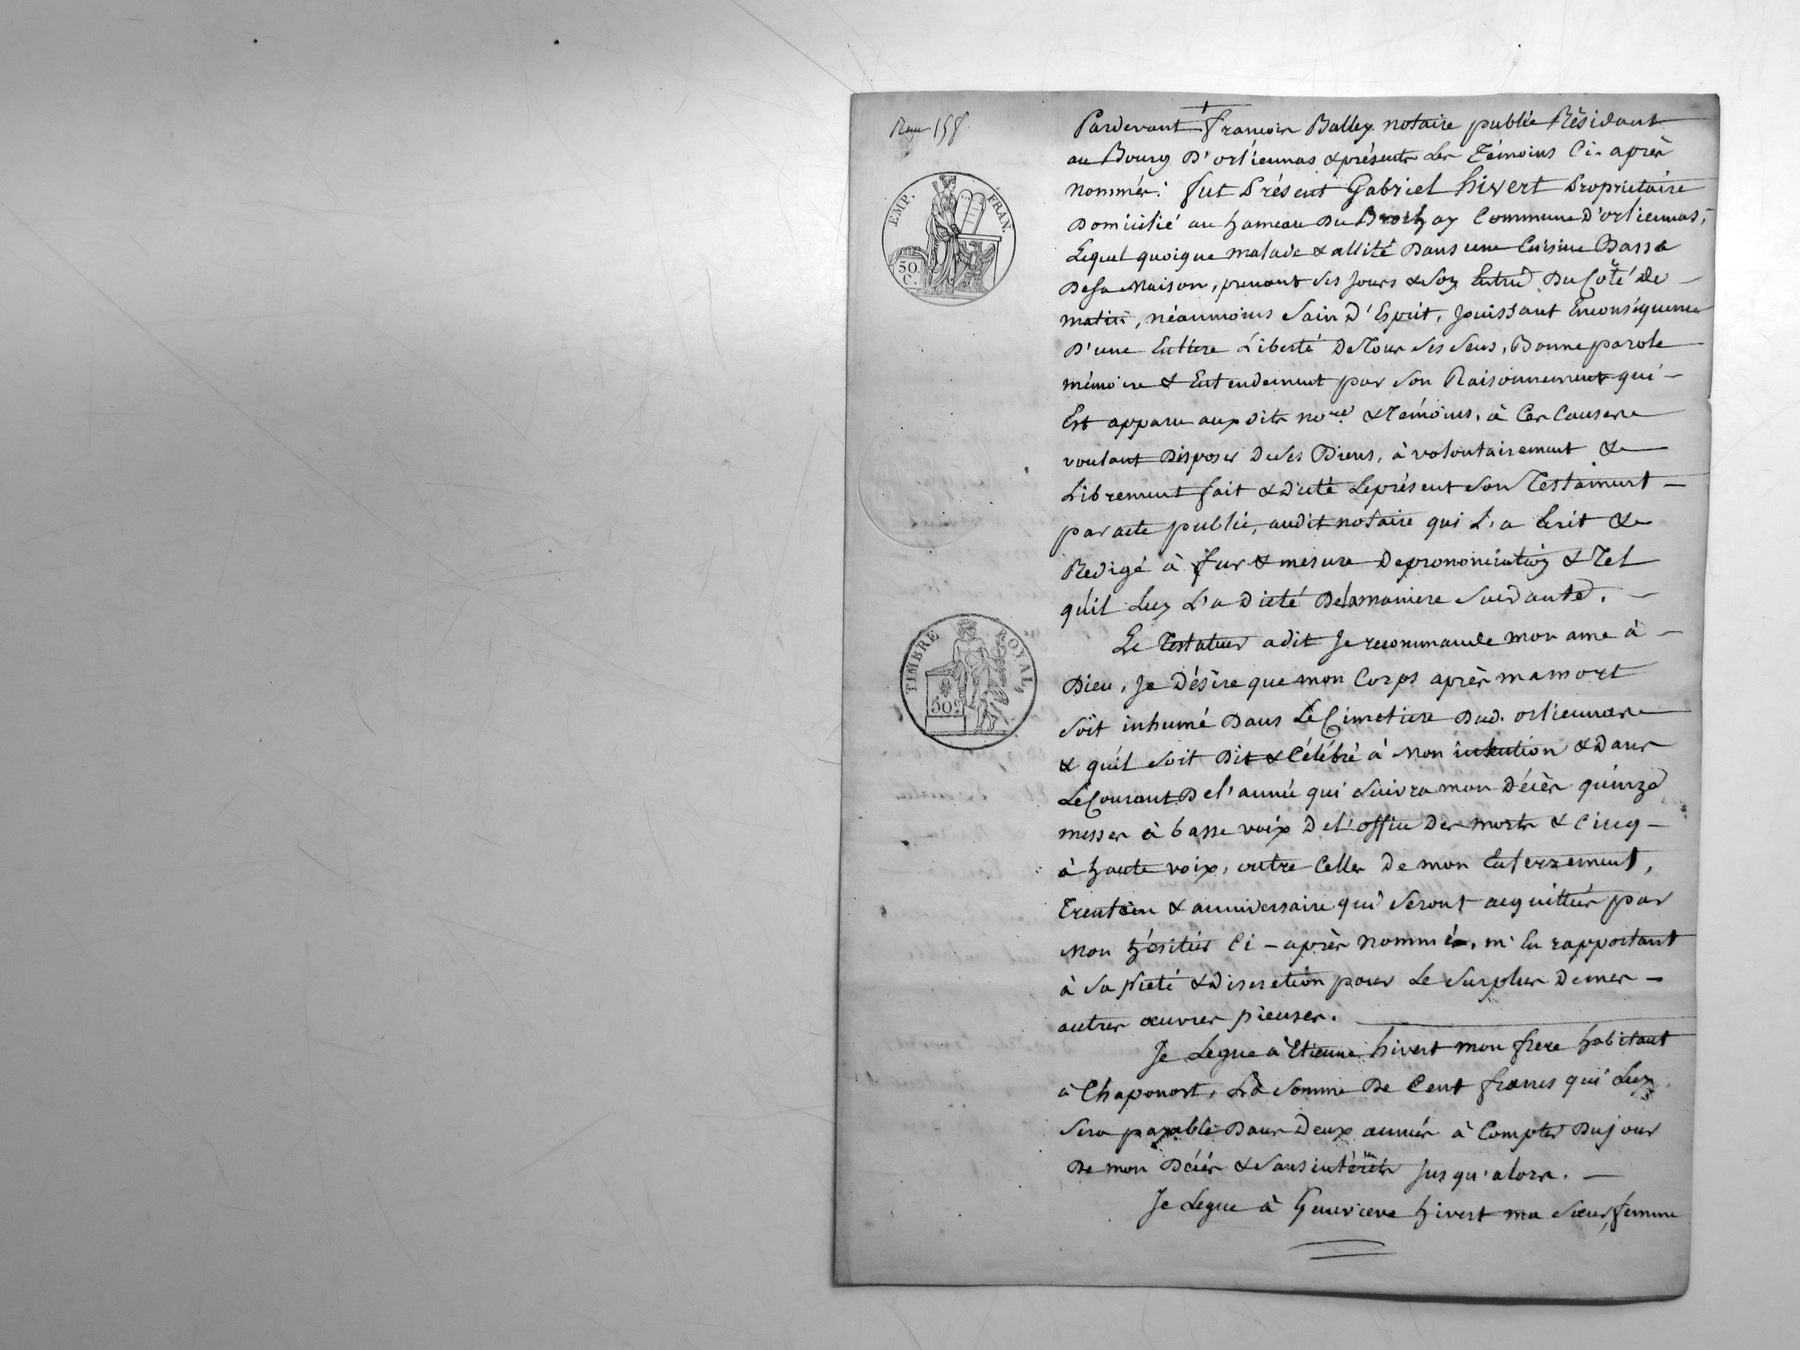 158
Pardevant François Balley notaire public Résidant
au Bourg D'orliennas & présents les Témoins Ci-après
nommés: fut Présent Gabriel hivert Propriétaire
Domicilié au hameau Du Commune D'orliennas,
Lequel quoique malade & allité Dans une Cuisine Basse
De sa Maison, prenant ses Jours & son Entrée Du Côté de
matin, néanmoins Sain D'Esprit, Jouissant Enconséquence
D'une Entiere Liberté De Tous ses sens, Bonne parole
mémoire & Entendement par son Raisonnement qui
Est apparu auxdits no.re & Témoins, à Ces Causes
voulant Disposer De ses Biens, à volontairement &
Librement fait & dicté Le présent son Testament
par acte public, audit notaire qui L'a Ecrit &
Redigé à fur & mesure De prononciation & Tel
qu'il Luy L'a Dicté De la maniere Suivante.
Le Testateur a dit Je recommande mon ame à
Dieu, Je Désire que mon Corps après ma mort
soit inhumé Dans Le Cimetiere Dud. orliennas
& qu'il soit Dit & Célébré à Mon intention & Dans
Le Courant De l'année qui suivra mon Décès quinze
messes à basse voix De l'office Des morts & Cinq
à haute voix, outre Celles De mon Enterrement,
Trentain & anniversaire qui seront acquittés par
Mon héritier Ci-après nommé, m'En rapportant
à Sa Piété & Discretion pour Le Surplus De mes
autres œuvres pieuses.
Je Legue à Etienne hivert mon frere habitant
à Chaponost, La Somme De Cent francs qui Luy
Sera payable Dans Deux années à Compter Du jour
De mon Décès & Sans intérêts Jusqu'alors.
Je Legue à Geneviève hivert ma Sœur, femme
EMP. FRAN.
50.
C.
TIMBRE ROYAL
50c